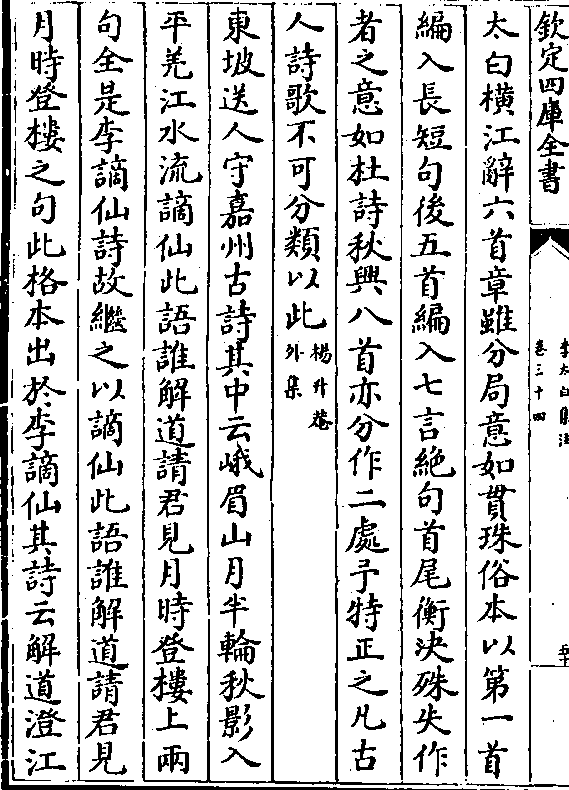 欽定四庫全書
李太白集注
卷三十四
太白橫江辭六首章雖分局意如貫珠俗本以第一首
編入長短句後五首編入七言絶句首尾衡決殊失作
者之意如杜詩秋興八首亦分作二處予特正之凡古
人詩歌不可分類以此楊升菴外集
東坡送人守嘉州古詩其中云峨眉山月半輪秋影入
平羌江水流謫仙此語誰解道請君見月時登樓上兩
句全是李謫仙詩故繼之以謫仙此語誰解道請君見
月時登樓之句此格本出於李謫仙其詩云解道澄江